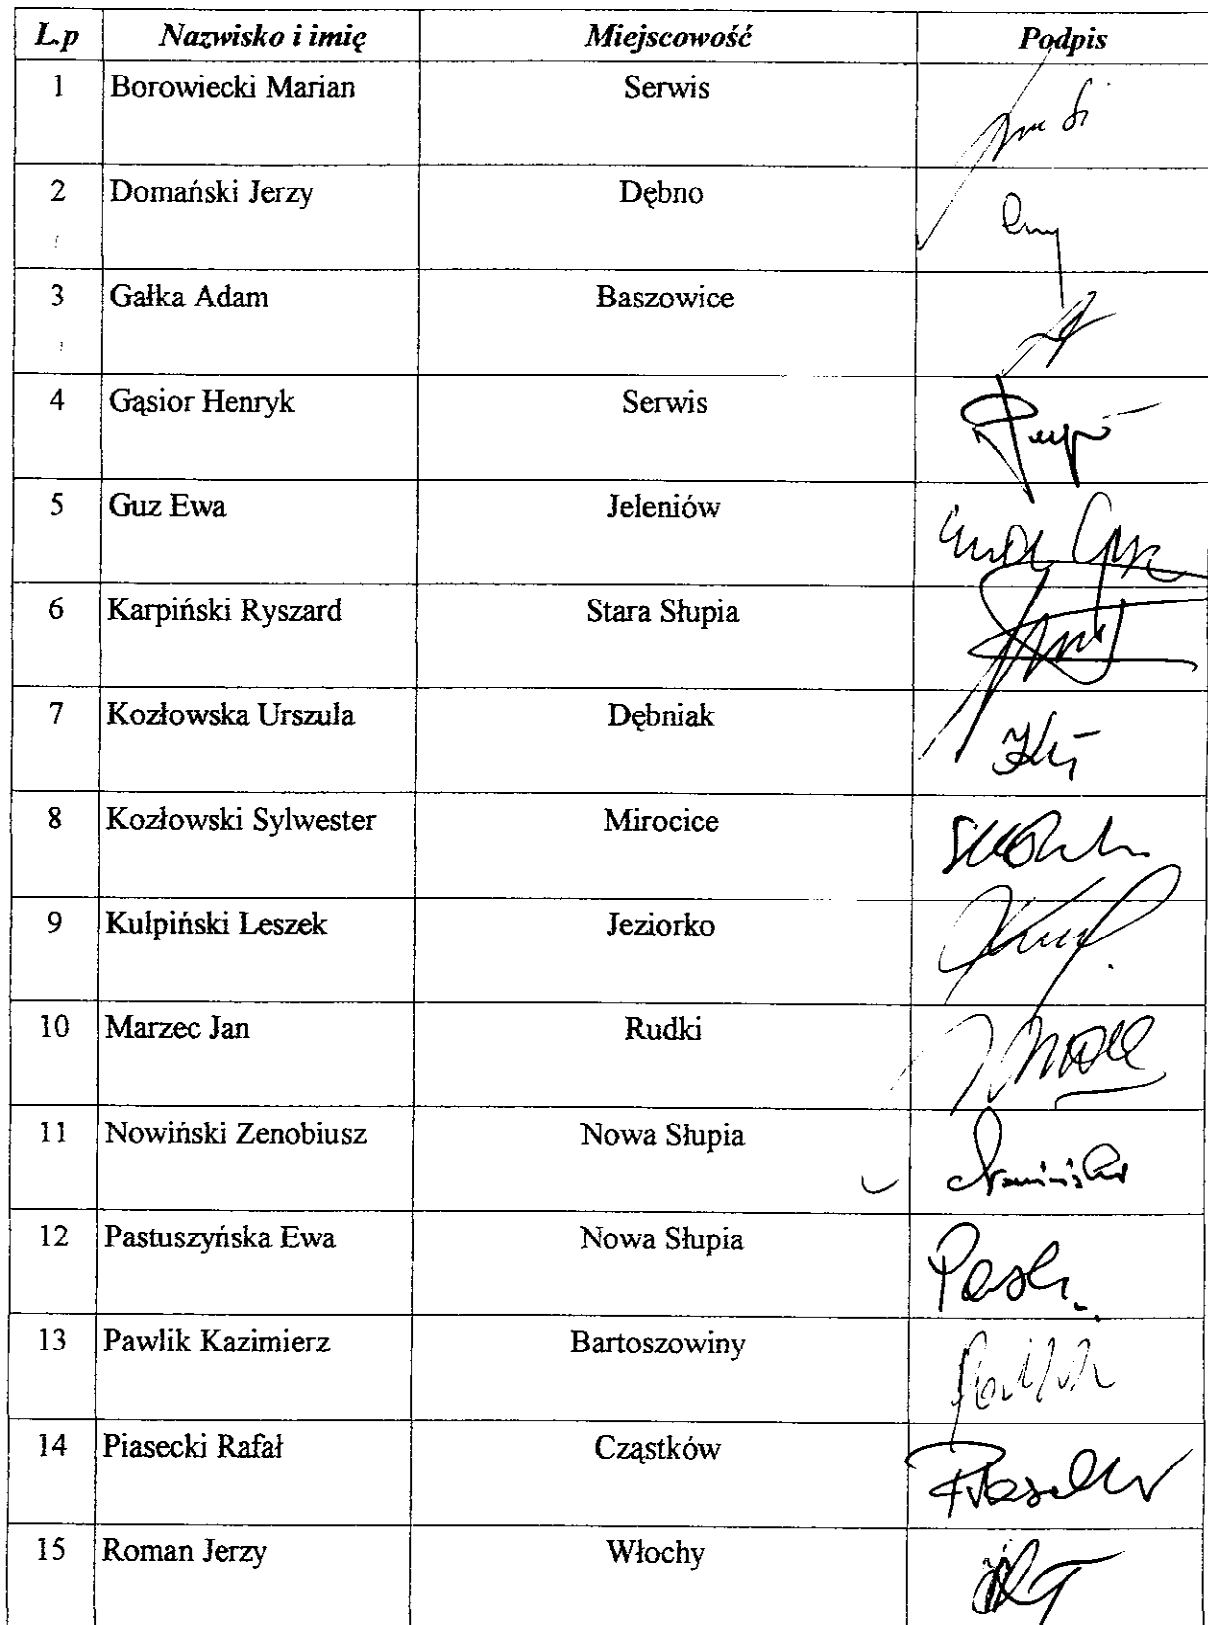 L.p Nazwisko i imię Miejscowość Podpis
1 Borowiecki Marian Serwis
2 Domański Jerzy Dębno
3 Gałka Adam Baszowice
4 Gąsior Henryk Serwis
5 Guz Ewa Jeleniów
6 Karpiński Ryszard Stara Słupia
7 Kozłowska Urszula Dębniak
8 Kozłowski Sylwester Mirocice
9 Kulpiński Leszek Jeziorko
10 Marzec Jan Rudki
11 Nowiński Zenobiusz Nowa Słupia
12 Pastuszyńska Ewa Nowa Słupia
13 Pawlik Kazimierz Bartoszowiny
14 Piasecki Rafał Cząstków
15 Roman Jerzy Włochy